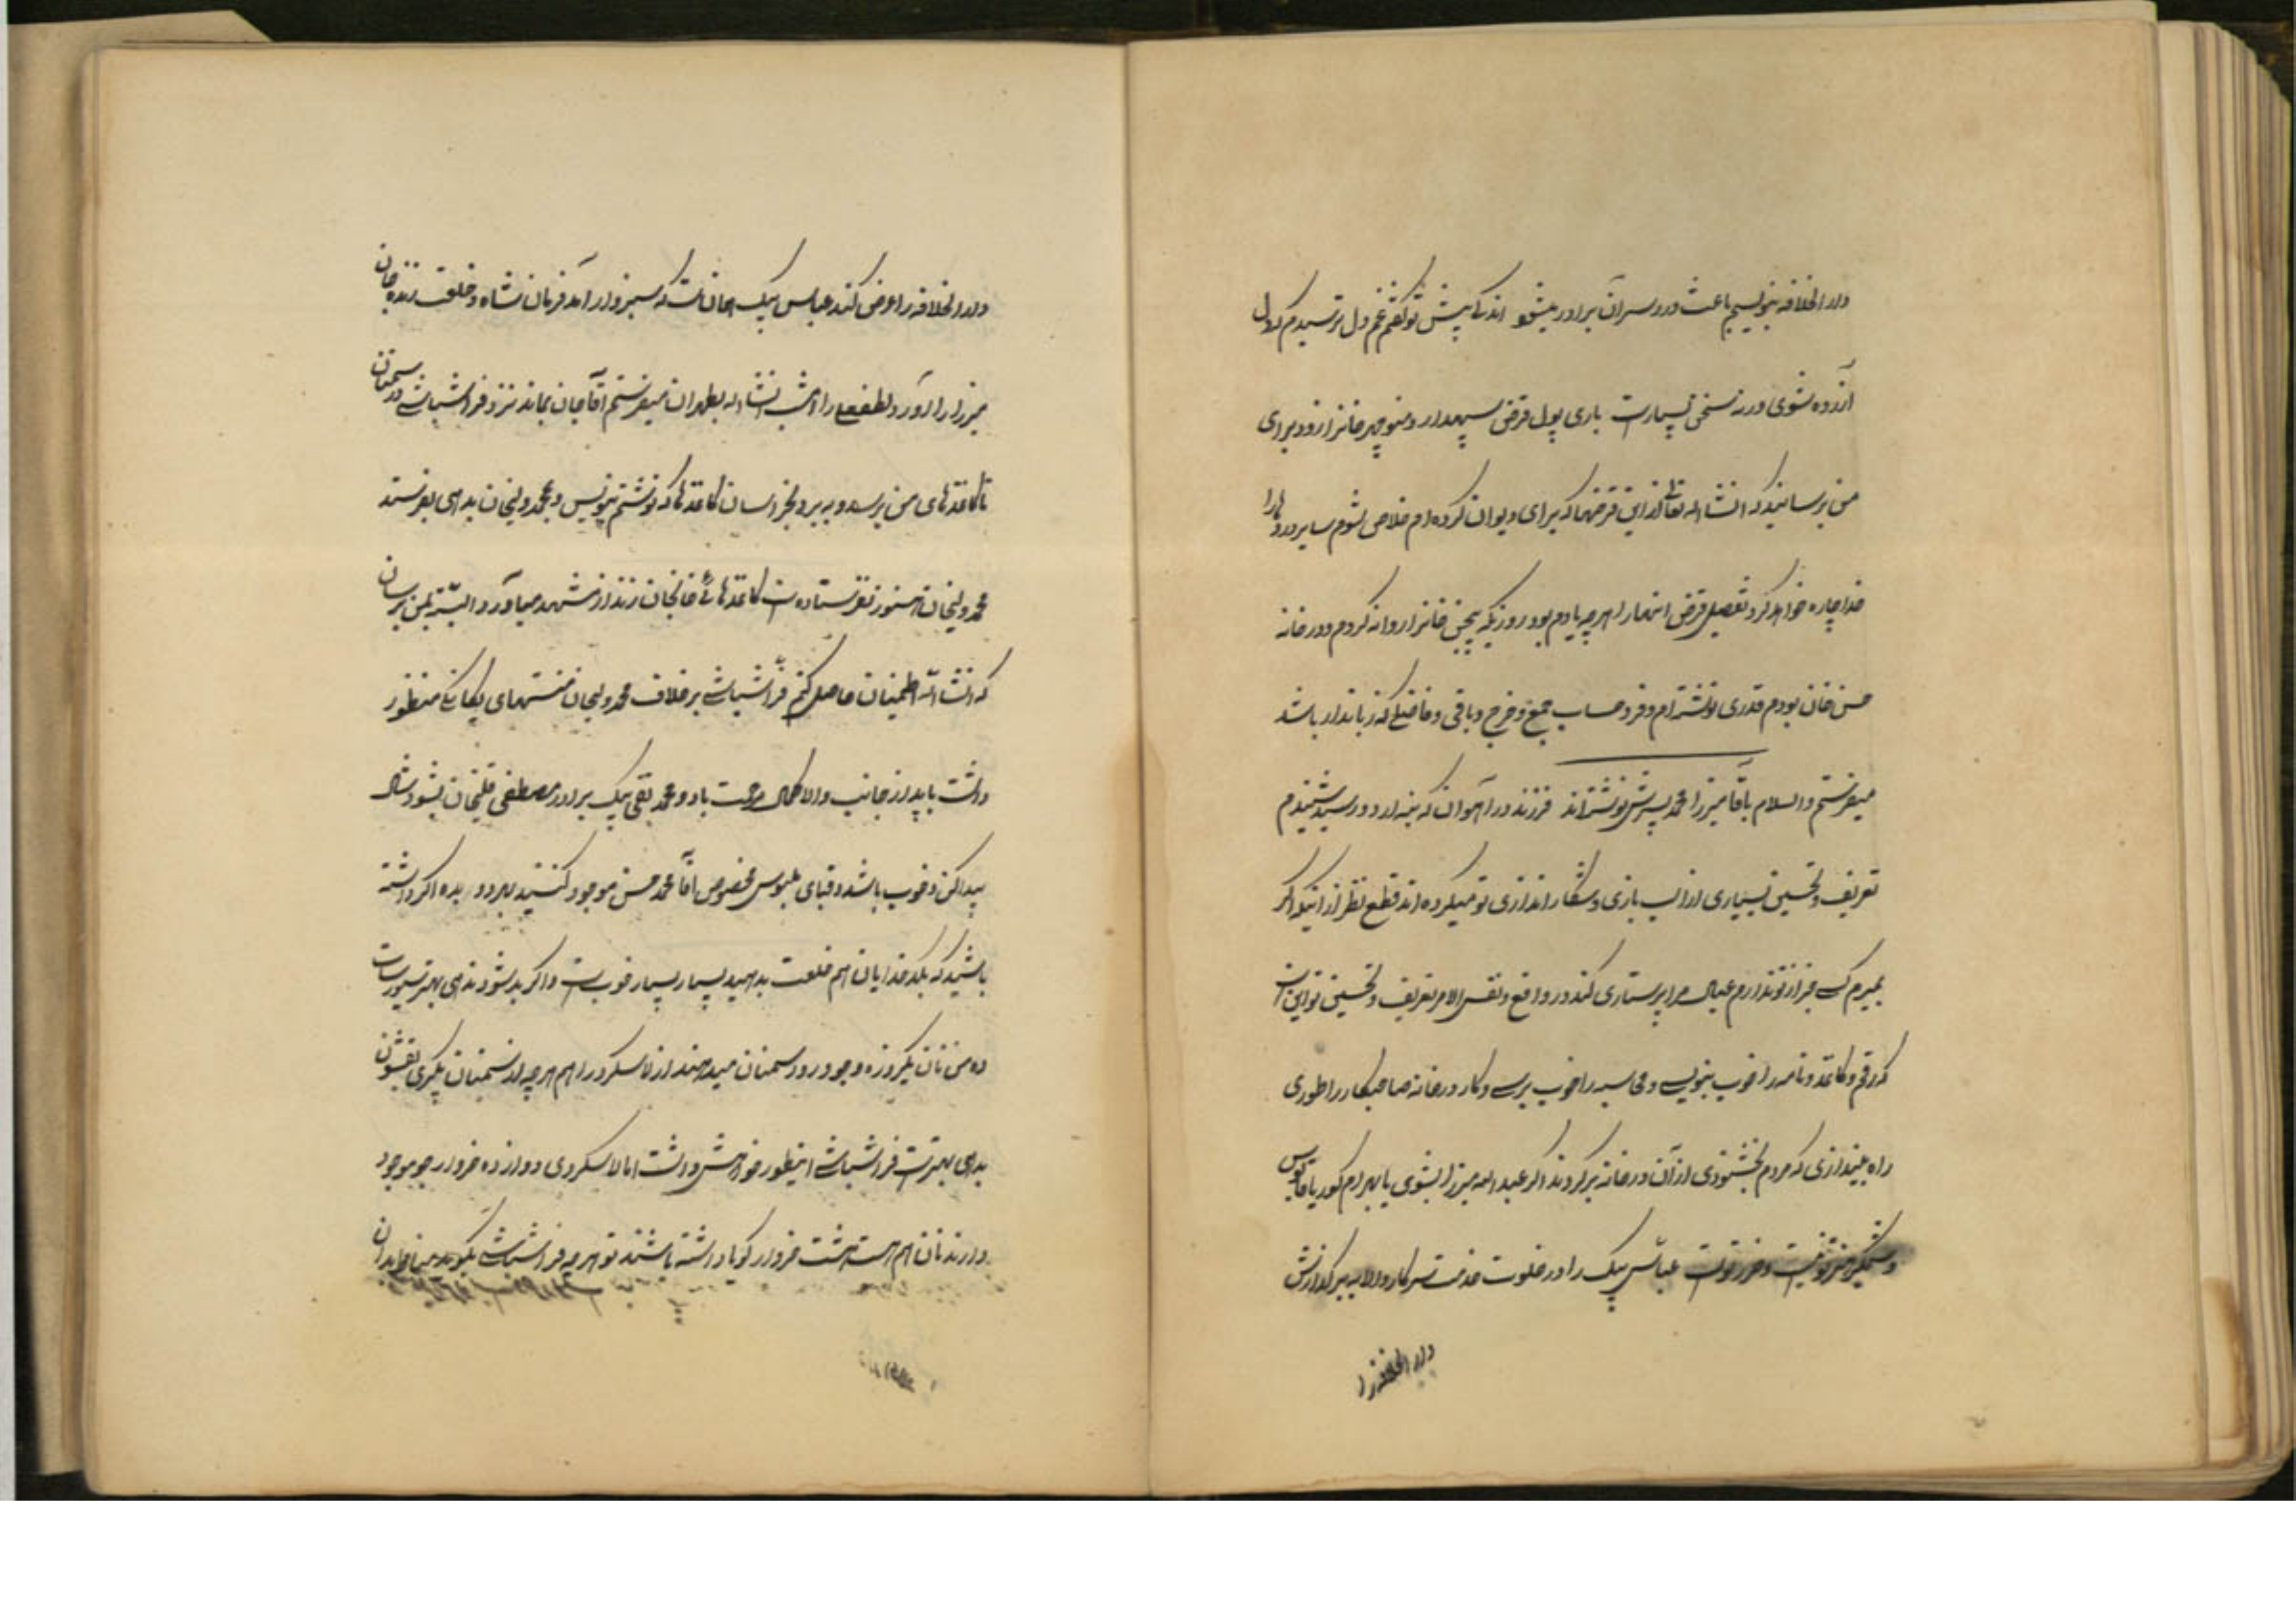 دار الخلافه بنویسیم باعث دردسر آن برادر میشود اندکی پیش تو گفتم غم دل ترسیدم که دل
آزرده شوی ورنه سخن بسیارست باری پول قرض سپهدار و منوچهر خانرا زود برای
من برسانید که انشاء الله تعالی از این قرضها که برای دیوان کرده‌ام خلاص بشوم سایر دردها را
خدا چاره خواهد کرد تفصیل قرض اینها را هر چه یادم بود روزیکه یحیی خانرا روانه کردم و در خانه
حسن خان بودم قدری نوشته‌ام و فرد حساب جمع و خرج و باقی و فاضلی که زباندار باشد
میفرستم والسلام بآقا میرزا محمد پسرش نوشته‌اند فرزند در آهوان که بنه اردو رسید شنیدم
تعریف و تحسین بسیاری از اسب بازی و شکار اندازی تو میکرده‌اند قطع نظر از اینکه اگر
بمیرم کسی غیر از تو ندارم عیال مرا پرستاری کند در واقع و نفس الامر تعریف و تحسین تو این است
که رقم و کاغذ و نامه را خوب بنویسی و محاسبه را خوب برسی و کار درخانه صاحبکار را طوری
راه بیندازی که مردم بخشنودی از آن درخانه برگردند اگر عبدالله میرزا بشوی یا بهرام گور یا قابوس
وشمگیر هنر تو نیست و ضرر تو است عباس بیک را در خلوت خدمت سرکار والا ببر گذارش
دار الخلافه را
دار الخلافه را عرض کند عباس بیک همان است که سبزوار آمد فرمان شاه و خلعت زنده خان
میرزا را آورد لطفعلی را امشب انشاء الله بطهران میفرستم آقاجان بماند نزد فراشباشی در سمنان
تا کاغذهای من برسد و ببرد بخراسان کاغذها که نوشتم بنویس و بمحمد ولیخان بدهی بفرستد
محمد ولیخان هنوز نفرستاده است کاغذهائی خانجان زند از مشهد میاورد البته بمن برسان
که انشاء الله اطمینان حاصل کنم فراشباشی بر خلاف محمد ولیخان منتهای یکانگی منظور
داشت باید از جانب والا کمال مرحمت باو و محمد تقی بیک برادر مصطفی قلیخان بشود شال
پیدا کن و خوب باشد و قبای ملبوس مخصوص آقا محمد حسن موجود کنید بهر دو بده اگر داشته
باشید که بکدخدایان هم خلعت بدهید بسیار بسیار خوب است و اگر بد شود ندهی بهتر است
ده من نان یکروزه وجود رود سمنان میدهند از لاسکرد را هم هر چه از سمنان بگیری بقشون
بدهی بهتر است فراشباشی اینطور خواهش داشت اما لاسکردی دوازده خروار جو موجود
دارند نان هم هست هشت خروار گویا داشته باشند تو هر چه فراشباشی بگوید همان